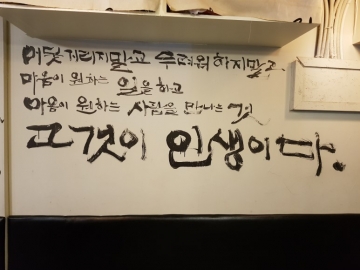 머뭇거리지말고 두려워하지말고
마음이 원하는 일을하고
마음이 원하는 사람을 만나는 것
그것이 인생이다.